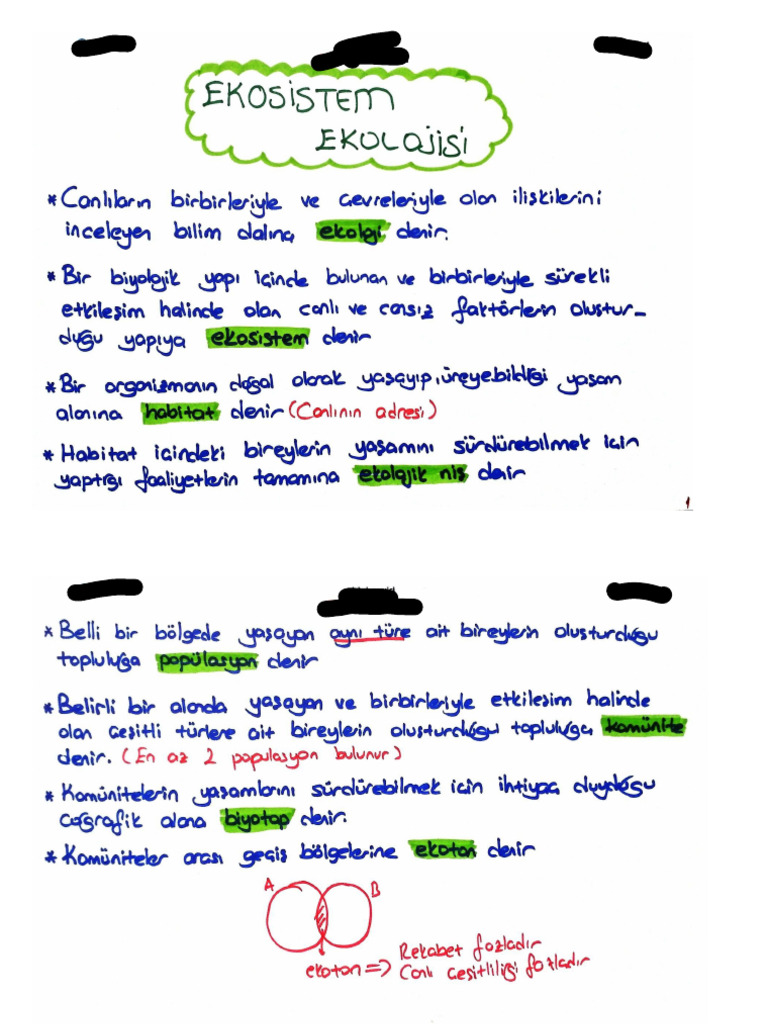 EKOSİSTEM
EKOLAJİSİ
* Canlıların birbirleriyle ve çevreleriyle olan ilişkilerini
inceleyen bilim dalına ekoloji denir.
* Bir biyolojik yapı içinde bulunan ve birbirleriyle sürekli
etkileşim halinde olan canlı ve cansız faktörlerin oluştur_
duğu yapıya ekosistem denir
* Bir organizmanın doğal olarak yaşayıp, üreyebildiği yaşam
alanına habitat denir (Canlının adresi)
* Habitat içindeki bireylerin yaşamını sürdürebilmek için
yaptığı faaliyetlerin tamamına ekolojik niş denir
1
* Belli bir bölgede yaşayan aynı türe ait bireylerin oluşturduğu
topluluğa popülasyon denir
* Belirli bir alanda yaşayan ve birbirleriyle etkileşim halinde
olan çeşitli türlere ait bireylerin oluşturduğu topluluğa komünite
denir. (En az 2 populasyon bulunur)
* Komünitelerin yaşamlarını sürdürebilmek için ihtiyaç duyduğu
coğrafik alana biyotop denir.
* Komüniteler arası geçiş bölgelerine ekoton denir
A B
ekoton => Rekabet fazladır
Canlı çeşitliliği fazladır